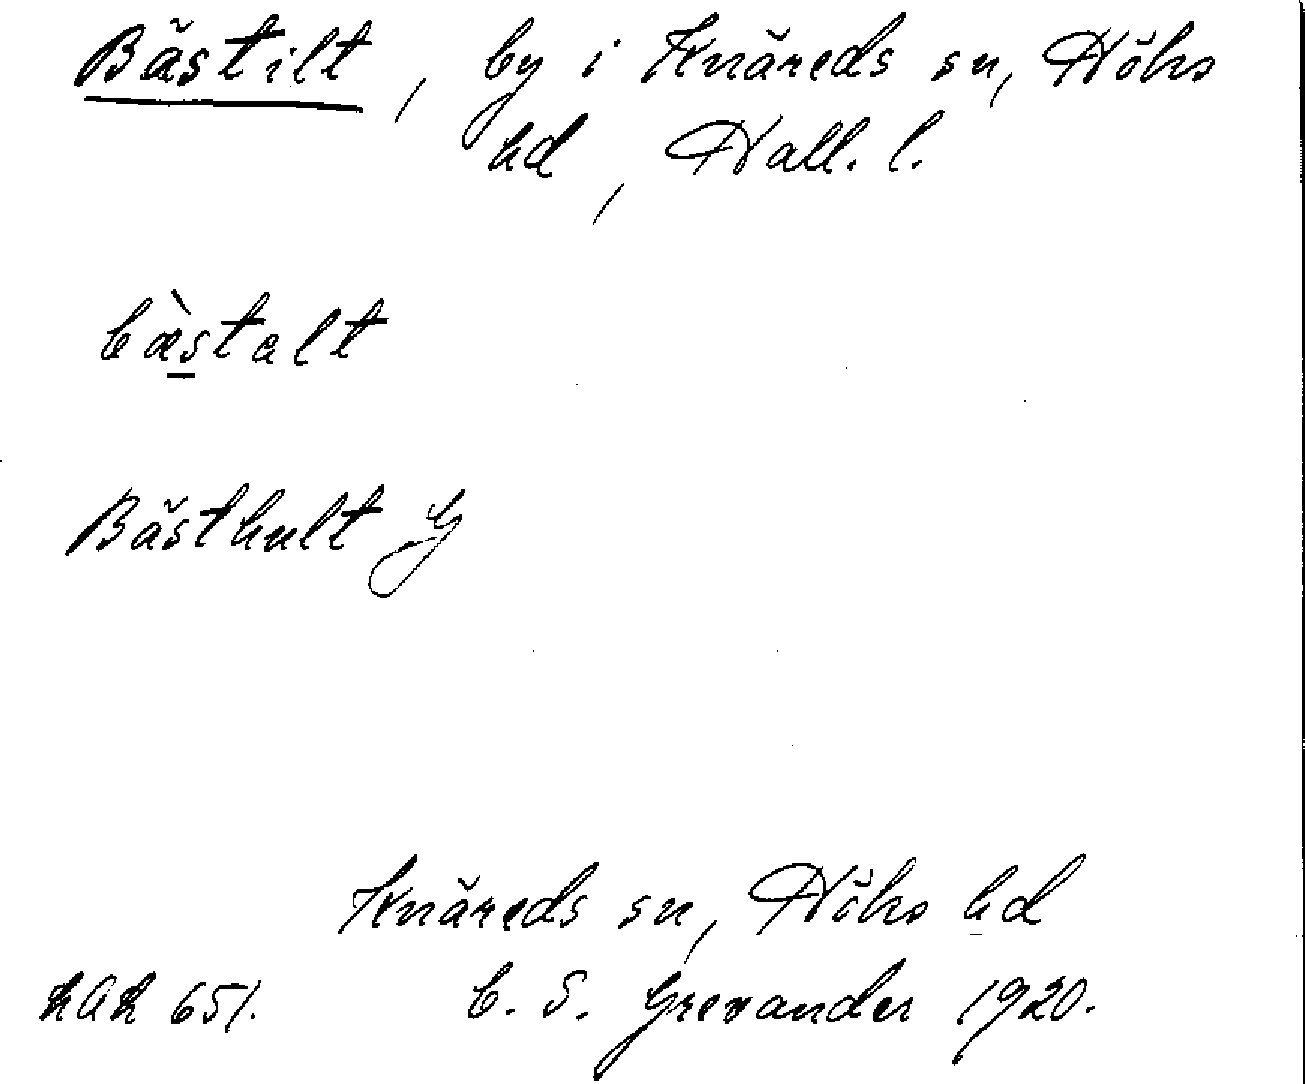 Bästilt, by i Knäreds sn, Höks
hd, Hall. l.
bæ̀stalt
Bästhult G
Knäreds sn, Höks hd
651. C. S. Grexander 1920.